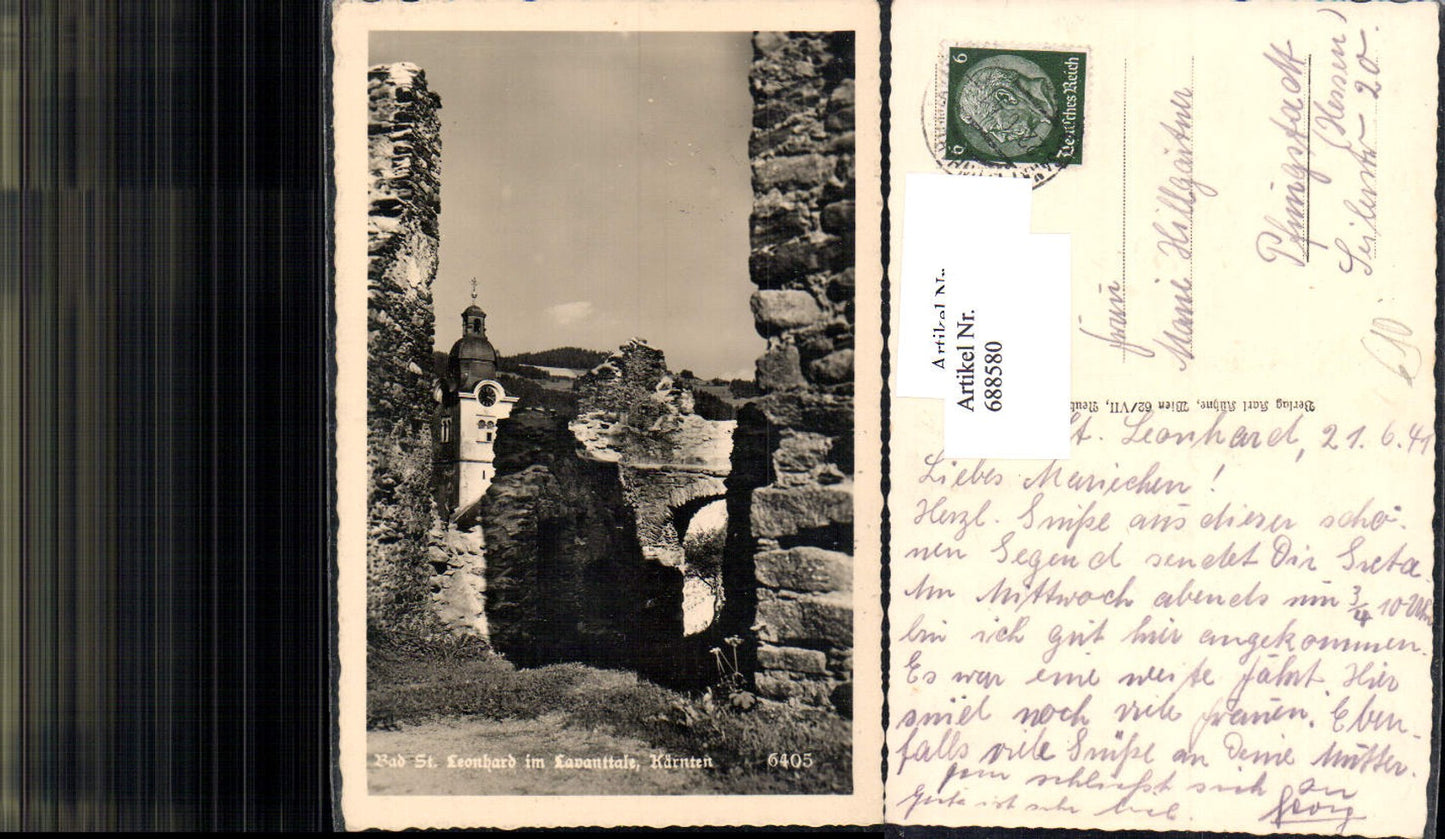 Bad St. Leonhard im Lavanttale, Kärnten 6405
6 6
Deutsches Reich
Artikel Nr.
Artikel Nr.
688580
Frau
Marie Hillgärtner
Pfungstadt
(Hessen)
Seilerstr 20.
Verlag Karl Kühne, Wien 62/VII,
St. Leonhard, 21.6.41
Liebes Mariechen!
Herzl. Grüße aus dieser schö-
nen Gegend sendet Dir Greta.
Am Mittwoch abends um 3/4 10 Uhr
bin ich gut hier angekommen.
Es war eine weite Fahrt. Hier
sind noch viele Frauen. Eben-
falls viele Grüße an Deine Mutter.
schließt sich an
Georg